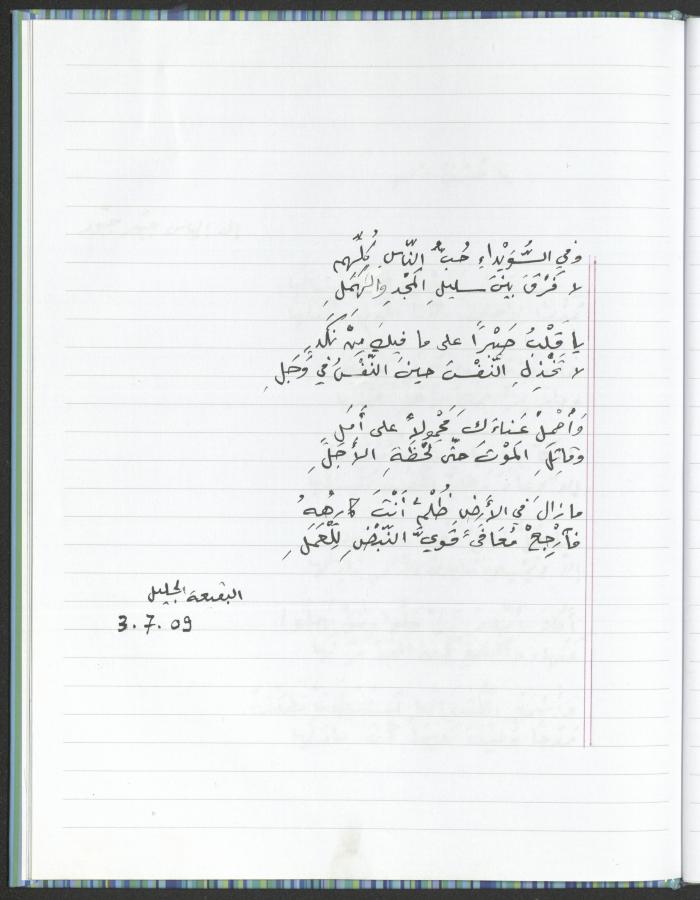 وَفي السُّوَيْداءِ حُبُّ النّاسِ كُلِّهِم
لا فَرْقَ بَيْنَ سليلِ المَجْدِ والهَمَلِ
يا قَلْبُ صَبْرًا على ما فيكَ مِنْ نَكَدِ
لا تَخْذِلِ النَّفْسَ حينَ النَّفْسُ في وَجَلِ
وَأحْمِلْ عَناءَكَ مَحْمولاً على أَمَلِ
وَقاتِلِ المَوْتَ حتّى لَحْظَةِ الأَجَلِ
ما زالَ في الأرْضِ ظُلْمٌ أَنْتَ كارِهُهُ
فَآرْجِعْ مُعَافَىً قَوِيَّ النَّبْضِ لِلْعَمَلِ
البقيعة الجليل
3.7.09